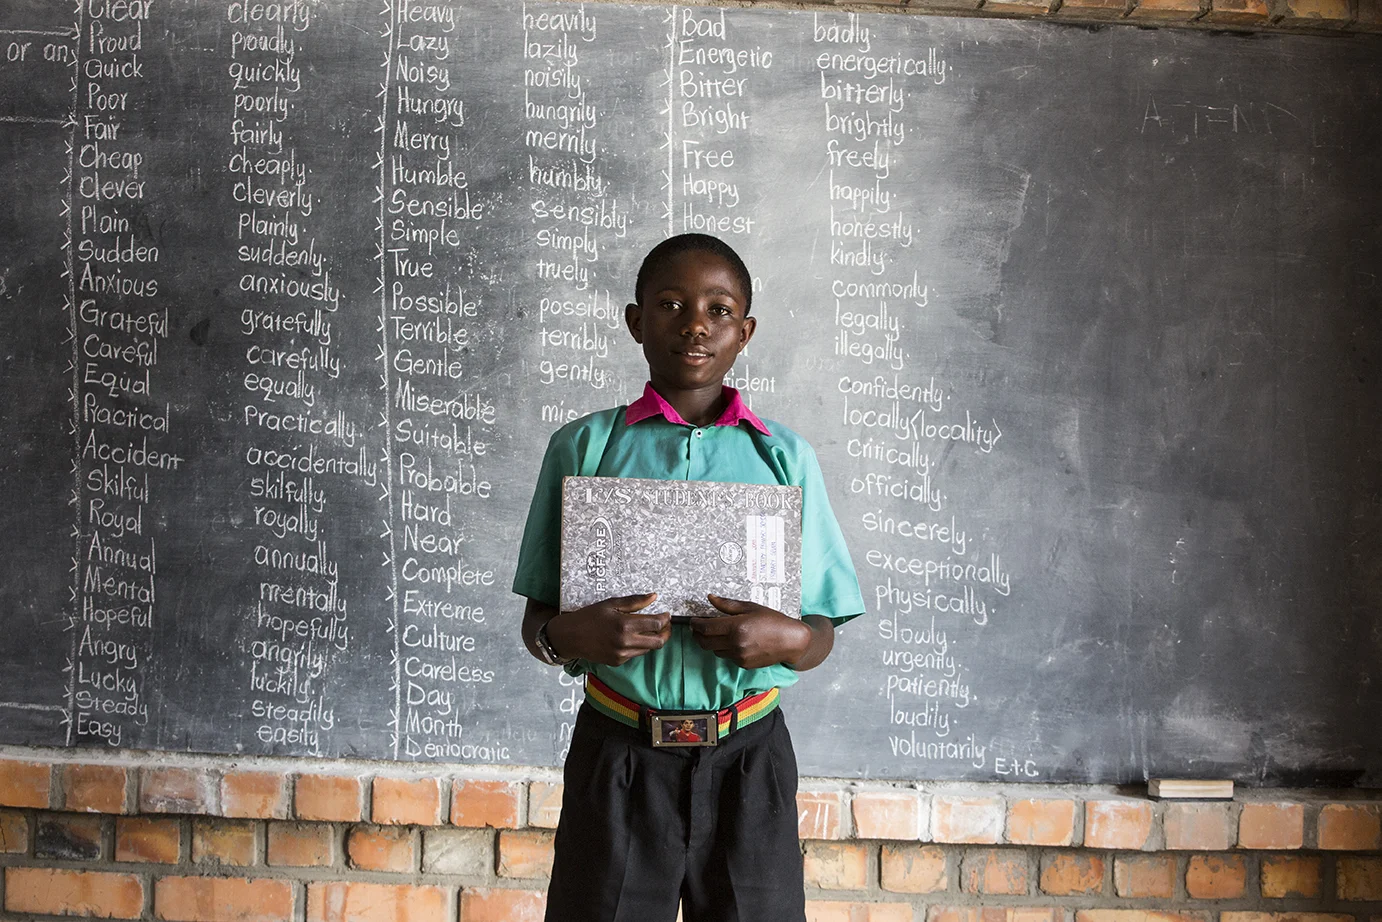 or an
Clear clearly.
Proud proudly.
Quick quickly
Poor poorly.
Fair fairly.
Cheap cheaply.
Clever cleverly.
Plain plainly.
Sudden suddenly.
Anxious anxiously.
Grateful gratefully
Careful carefully.
Equal equally.
Practical Practically.
Accident accidentally.
Skilful skilfully.
Royal royally.
Annual annually
Mental mentally
Hopeful hopefully.
Angry angrily.
Lucky luckily.
Steady steadily.
Easy easily
Heavy heavily
Lazy lazily
Noisy noisily.
Hungry hungrily.
Merry merrily.
Humble humbly.
Sensible sensibly.
Simple simply.
True truely.
Possible possibly
Terrible terribly.
Gentle gently.
Miserable
Suitable
Probable
Hard
Near
Complete
Extreme
Culture
Careless
Day
Month
Democratic
Bad badly.
Energetic energetically.
Bitter bitterly.
Bright brightly.
Free freely.
Happy happily.
Honest honestly.
kindly.
commonly.
legally.
illegally.
confidently.
locally<locality>
Critically.
officially.
sincerely.
exceptionally
physically.
slowly.
urgently.
patiently.
loudily.
voluntarily
E.t.c
STUDENT'S BOOK
PICFARE